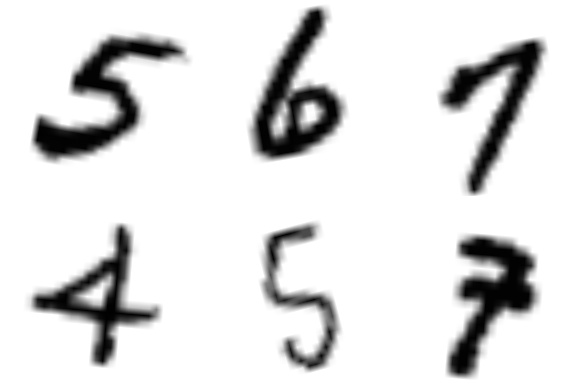 5 6 7
4 5 7